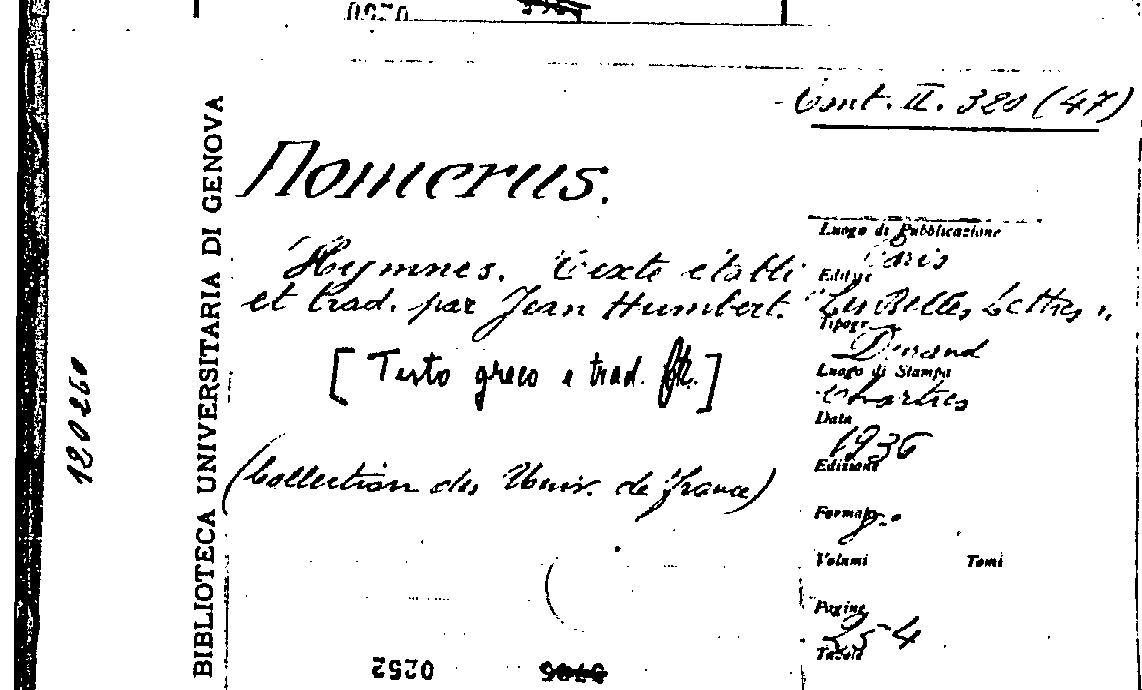 0250
Cont. II. 320 (47)
BIBLIOTECA UNIVERSITARIA DI GENOVA
120260
Homerus.
Hymnes. Texte établi
et trad. par Jean Humbert.
[Testo greco e trad. fr.]
(Collection des Univ. de France)
Luogo di Pubblicazione
Paris
Editore
"Les Belles Lettres"
Tipogr.
Durand
Luogo di Stampa
Chartres
Data
1936
Edizione
Formato
8°
Volumi Tomi
Pagine
254
Tavole
0252